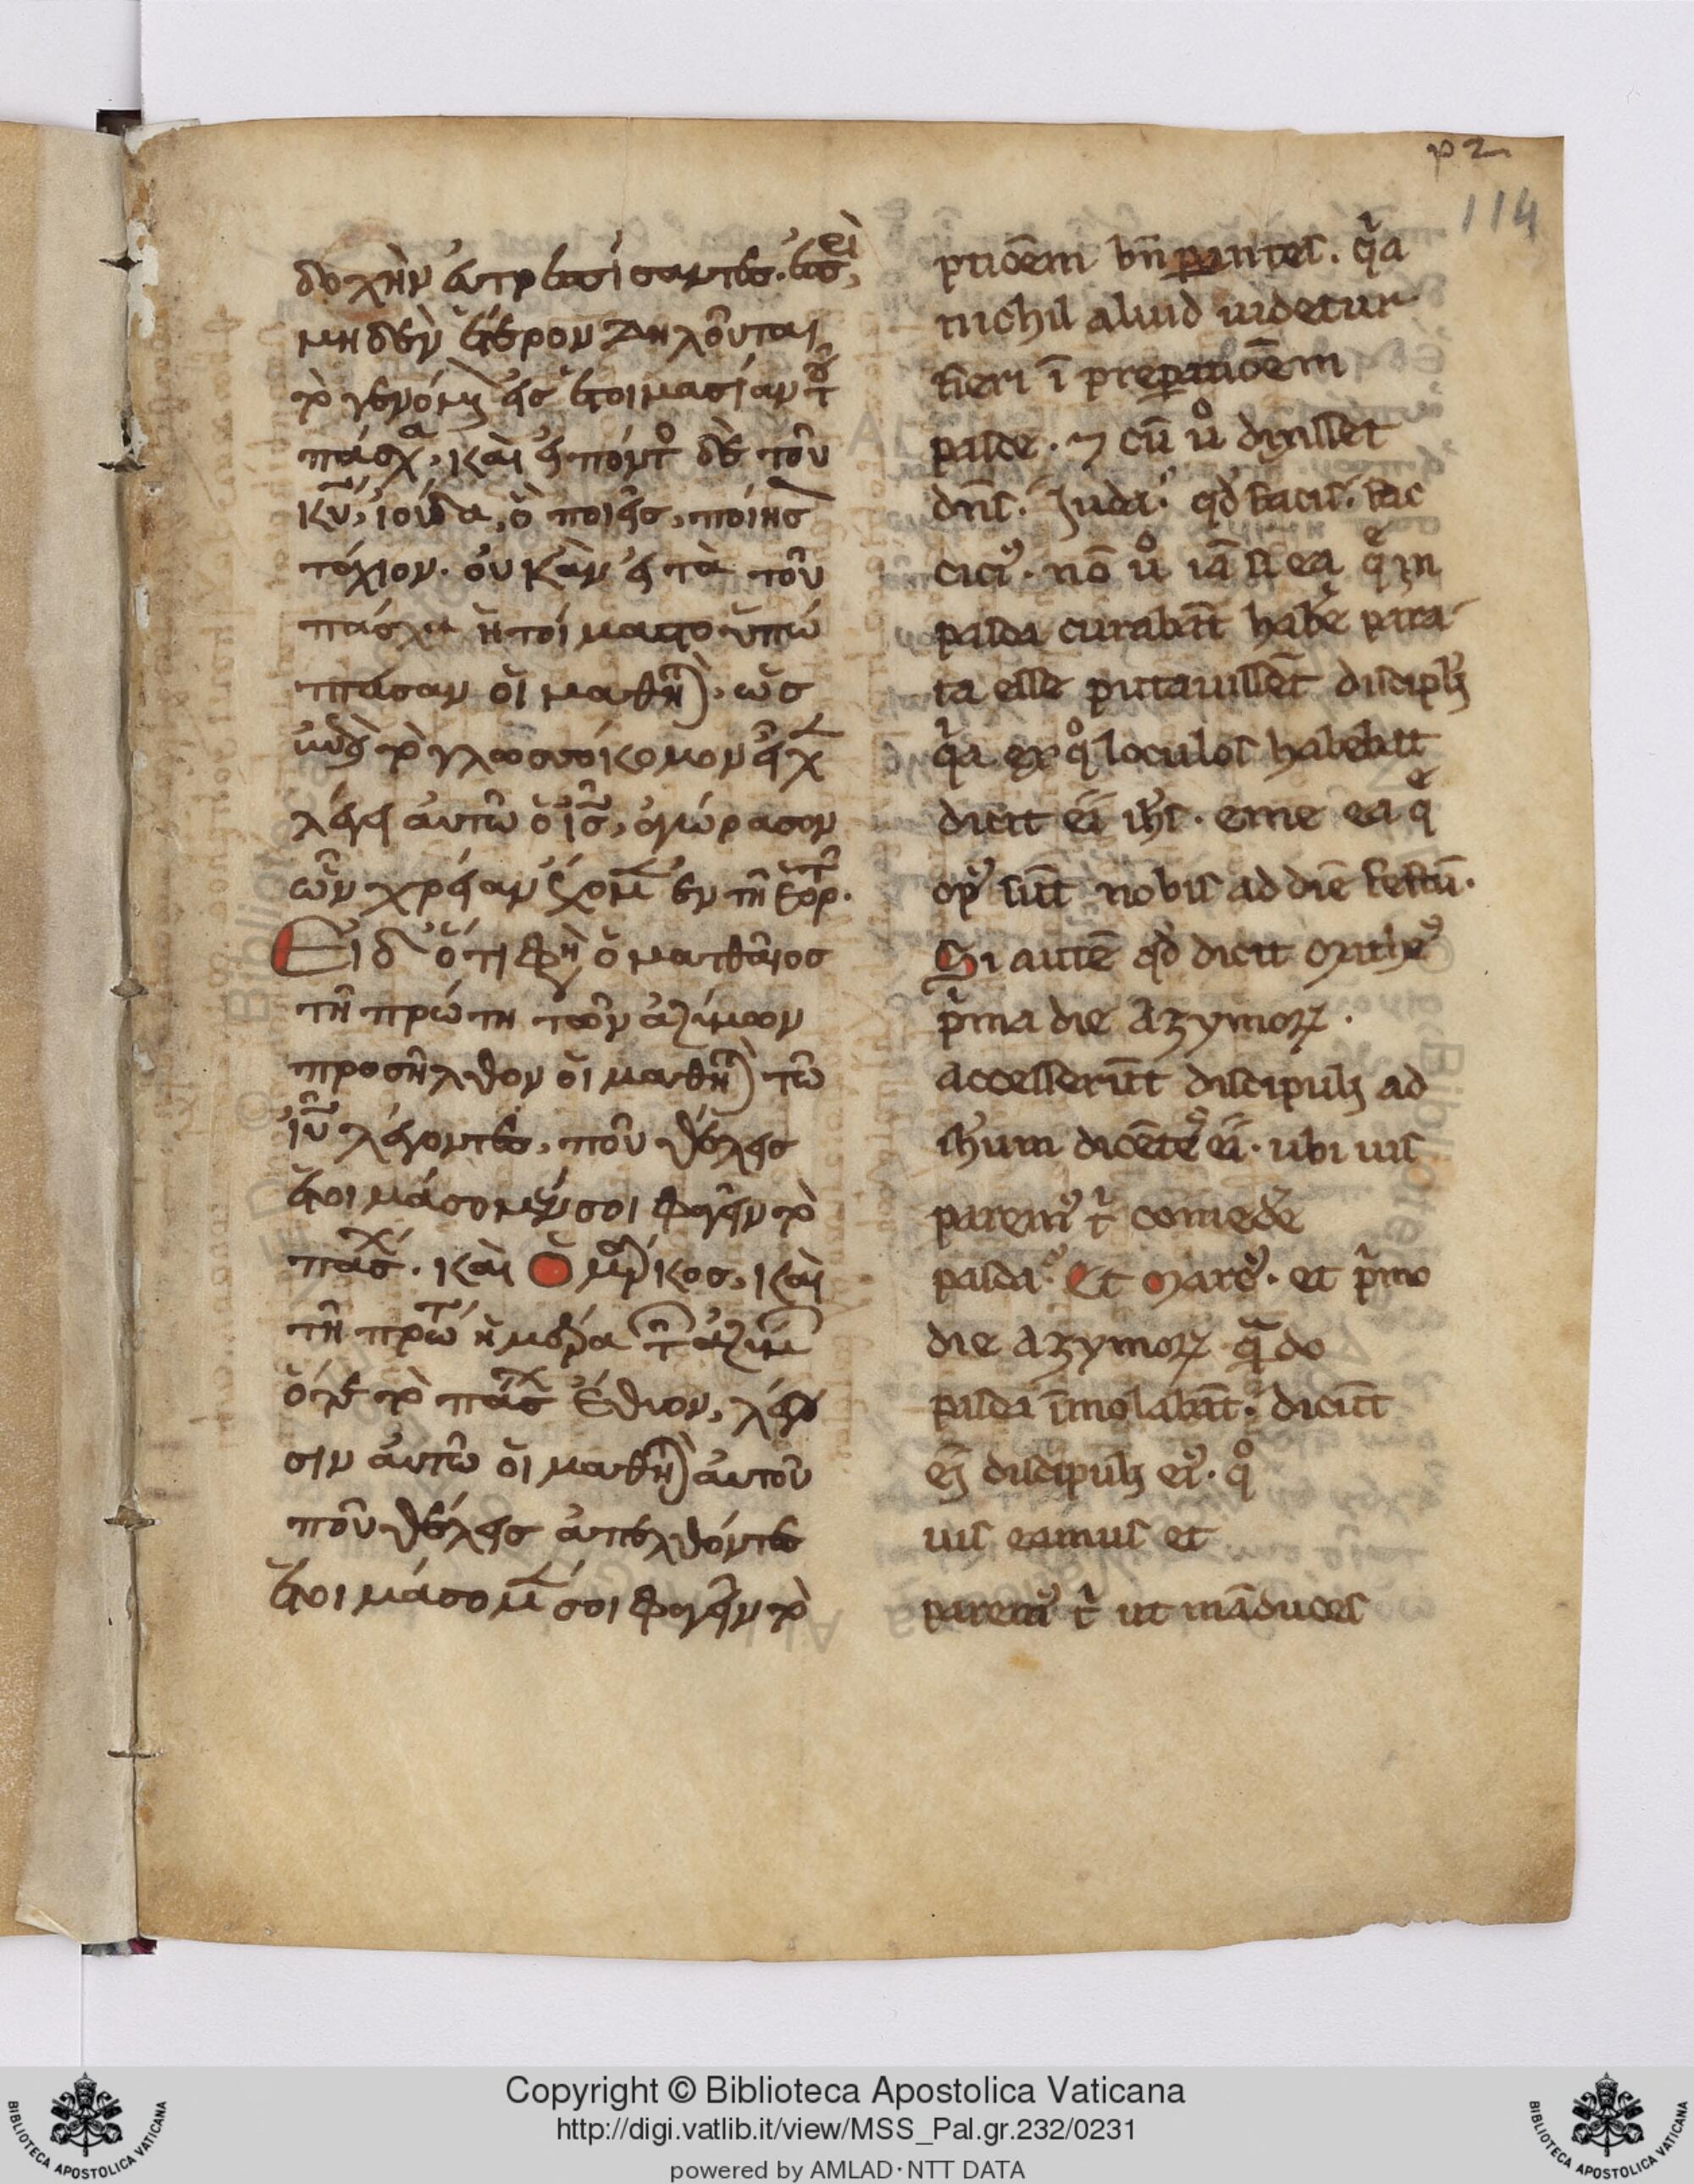 p 2
114
δοχὴν εὐτρεπίσαντες. ἐπεὶ
μηδὲν ἕτερον δηλοῦνται
τὸ γενόμεν εἰς ἑτοιμασίαν τοῦ
πάσχα, καὶ εἰπόντο δὲ τοῦ
κυ, ἰούδα, ὃ ποιεῖς, ποίησ
τάχιον. οὐκ ἂν εἰ τὰ τοῦ
πάσχα ἡτοίμαστο ὑπώ
πτασαν οἱ μαθη, ὡς
τὸ γλωσσόκομον εἶχ
λέγει αὐτῶ ὁ ις, ἀγώρασον
ὧν χρείαν ἔχομ ἐν τῆ ἑορτ.
Εἰ δ ὅτι φη ὁ ματθαῖος
τῆ πρώτη τῶν ἀζύμων
προσῆλθον οἱ μαθη τῶ
ιυ λέγοντες, ποῦ θέλεις
ἑτοιμάσομέν σοι φαγεῖν τὸ
πάσχ. καὶ ὁ μάρκος, καὶ
τῆ πρώτ ἡμέρα τ ἀζύμ
ὅτε τὸ πάσχ ἔθυον, λέγου
σιν αὐτῶ οἱ μαθη αὐτοῦ
ποῦ θέλεις ἀπελθόντες
ἑτοιμάσομ σοι φαγεῖν τὸ
ptiōem bn̄ parantes. qia
nichil aliud uidetur
fieri ī preparatiōem
pasce. ⁊ cū uo dixisset
dn̄s. Juda. qd facis. fac
cici9. nō uo iā si ea qe in
pasda curabāt habe para
ta esse putauissēt discipli
qia ex qo loculos habebat
dicit ei ihs. eme ea qe
op9 sūt nobis ad diē festū.
Si autē qd dicit Mathe9
pima die Azymoꝝ.
accesserūt discipuli ad
ihum dicētes ei. ubi uis
parem9 ti comedē
pasda. Et Marc9. et pimo
die Azymoꝝ qādo
pasda īmolabāt. dicūt
ei discipuli ei9. qo
uis eamus et
parem9 ti ut māduces
Copyright © Biblioteca Apostolica Vaticana
http://digi.vatlib.it/view/MSS_Pal.gr.232/0231
powered by AMLAD·NTT DATA
BIBLIOTECA APOSTOLICA VATICANA
BIBLIOTECA APOSTOLICA VATICANA